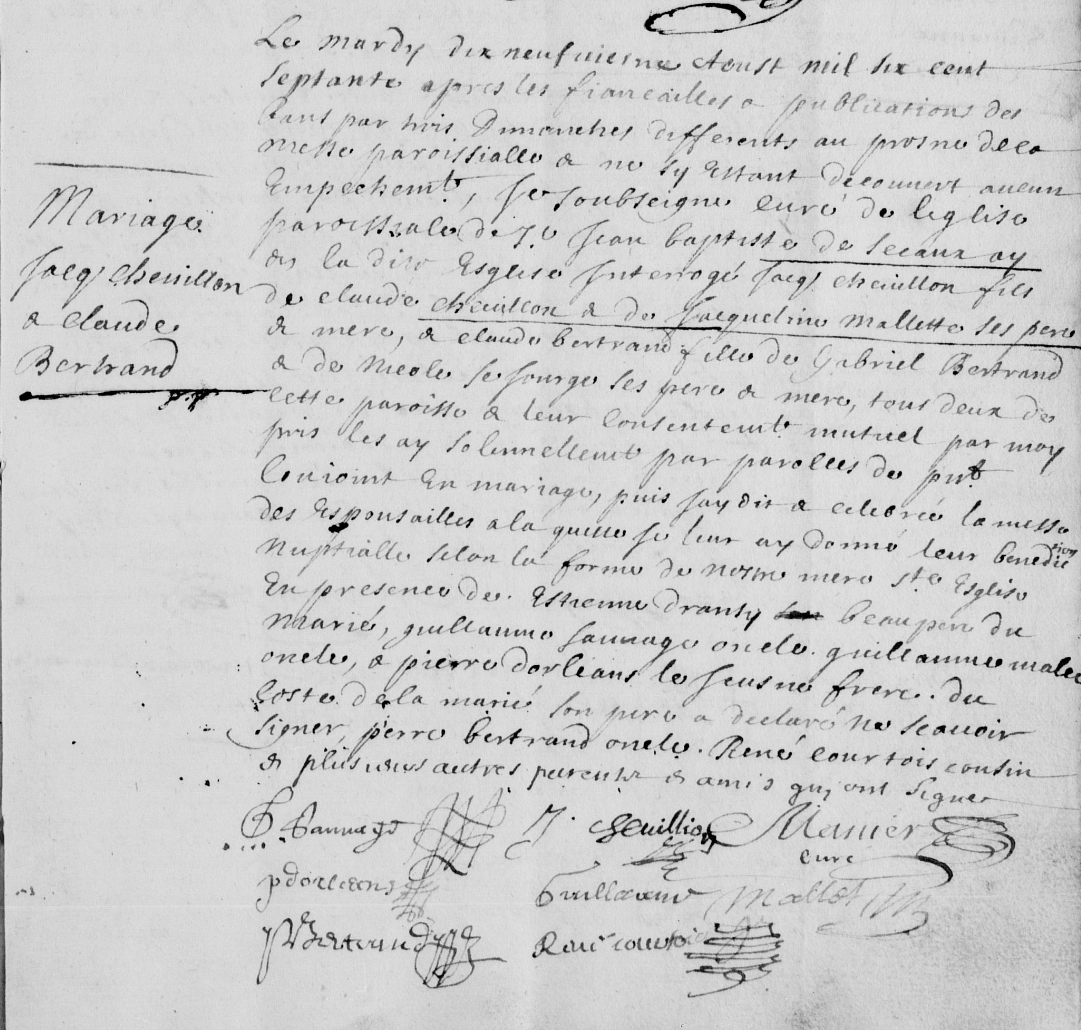 Mariage
Jacq chevillon
& claude
Bertrand
Le mardy dix neufviesme Aoust mil six cent
septante apres les fiancailles & publications des
bans par trois Dimanches differents au prosne de la
messe paroissialle & ne sy Estant decouvert aucun
Empechemt, Je soubsigne curé de leglise
paroissiale de St Jean baptiste de seeaux ay
en la dite Esglise Interrogé Jacq chevillon fils
de claude chevillon & de Jacqueline Mallette ses pere
& mere, & claude bertrand fille de Gabriel Bertrand
& de Nicole le sourge ses pere & mere, tous deux de
cette paroisse & leur consentemt mutuel par moy
pris les ay solennellemt par parolles de pnt
Conjoint En mariage, puis jay dit & celebré la messe
des Espousailles a la quelle je leur ay donné leur benediction
Nuptialle selon la forme de nostre mere Ste Esglise
En presence de Estienne dransy beaupere du
marié, guillaume sauvage oncle. guillaume malet
oncle, & pierre dorleans le Jeusne frere. du
Coste de la marié son pere a declaré ne scavoir
signer, pierre bertrand oncle. René courtois cousin
& plusieurs autres parents & amis qui ont signer
G Sauvage J. Chevillon Manier
curé
p dorleans Guillaume Mallet
p Bertrand René courtois